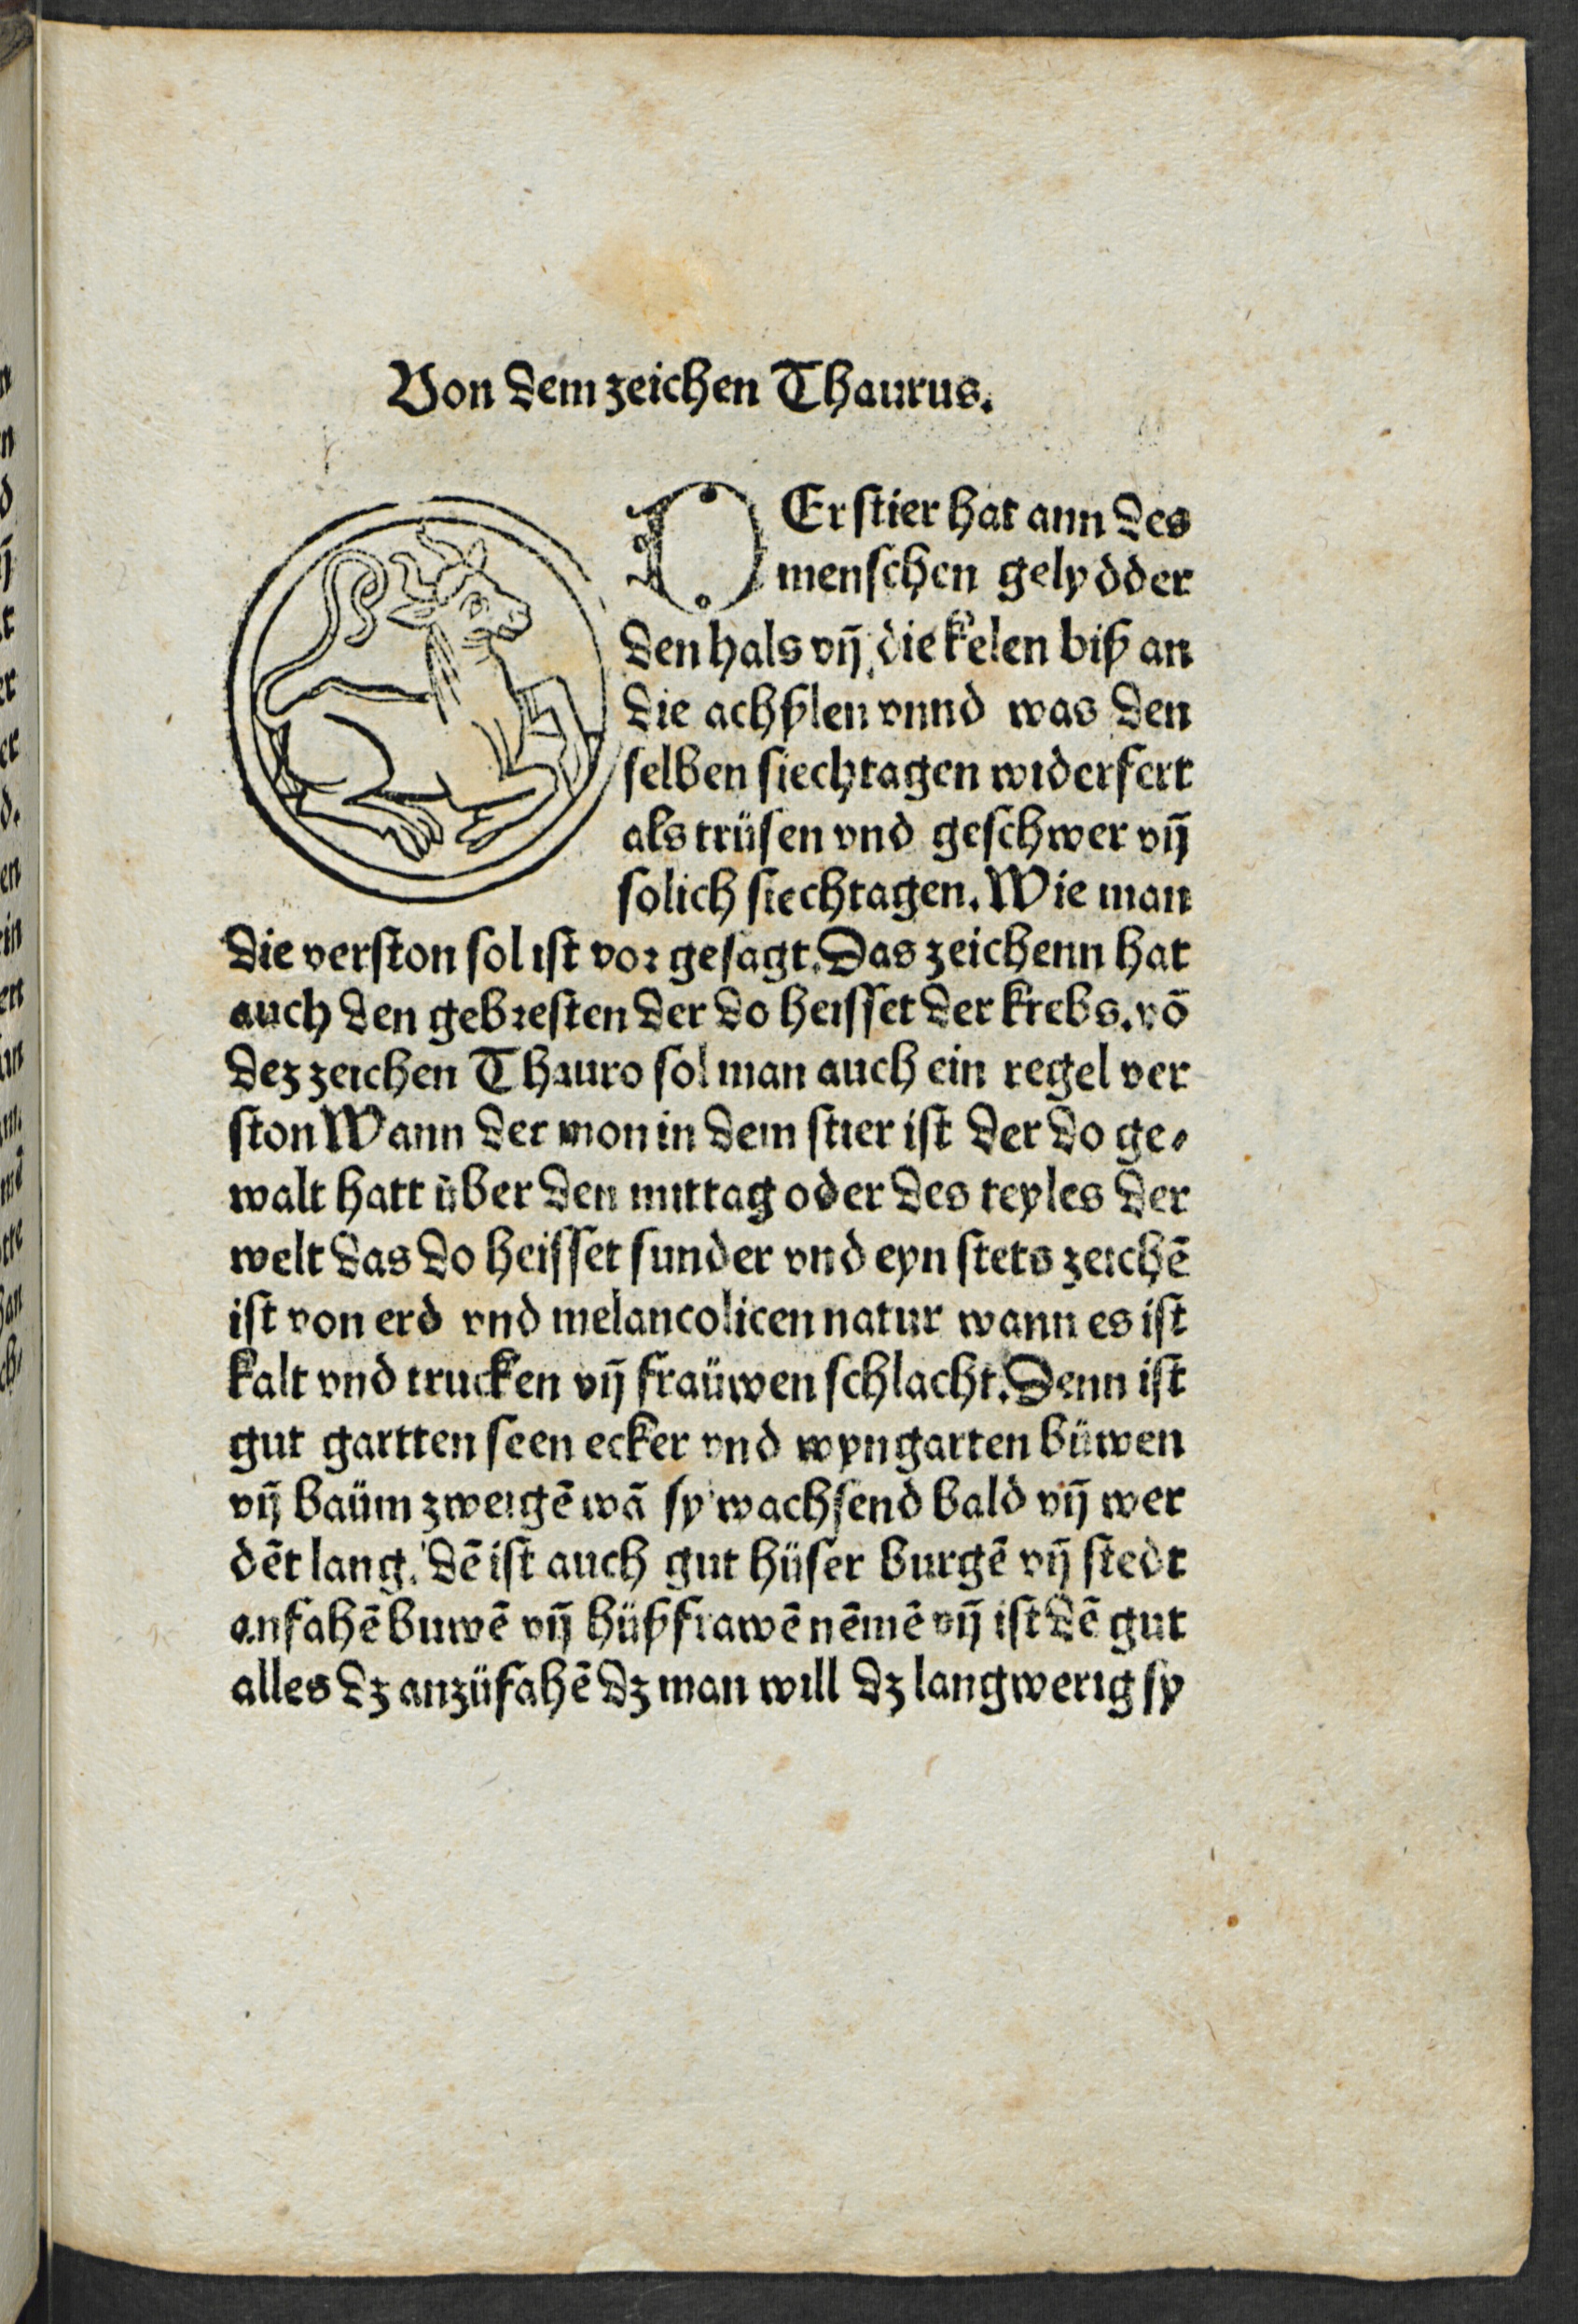 Von dem zeichen Thaurus.
DEr stier hat ann des
menschen gelydder
den hals vñ die kelen biß an
die achßlen vnnd was den
selben siechtagen widerfert
als trüsen vnd geschwer vñ
solich siechtagen. Wie man
die verston sol ist vor gesagt. Das zeichenn hat
auch den gebresten der do heisset der krebs. võ
dez zeichen Thauro sol man auch ein regel ver
ston Wann der mon in dem stier ist der do ge⸗
walt hatt über den mittag oder des teyles der
welt das do heisset sunder vnd eyn stets zeichẽ
ist von erd vnd melancolicen natur wann es ist
kalt vnd trucken vñ fraüwen schlacht. Denn ist
gut gartten seen ecker vnd wyngarten büwen
vñ baüm zweigẽ wã sy wachsend bald vñ wer
dẽt lang. dẽ ist auch gut hüser burgẽ vñ stedt
anfahẽ buwẽ vñ hüßfrawẽ nẽmẽ vñ ist dẽ gut
alles dz anzüfahẽ dz man will dz langwerig sy